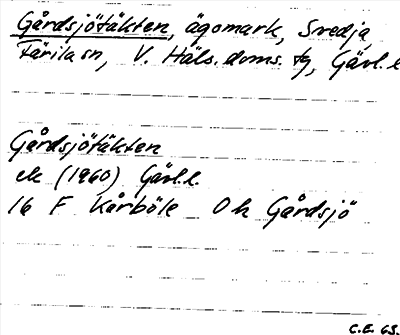 Gårdsjötäkten, ägomark, Svedja,
Färila sn, V. Häls. doms. tg, Gävl. l
Gårdsjötäkten
ek (1960) Gävl. l.
16 F Kårböle 0 h Gårdsjö
C.E. 65.